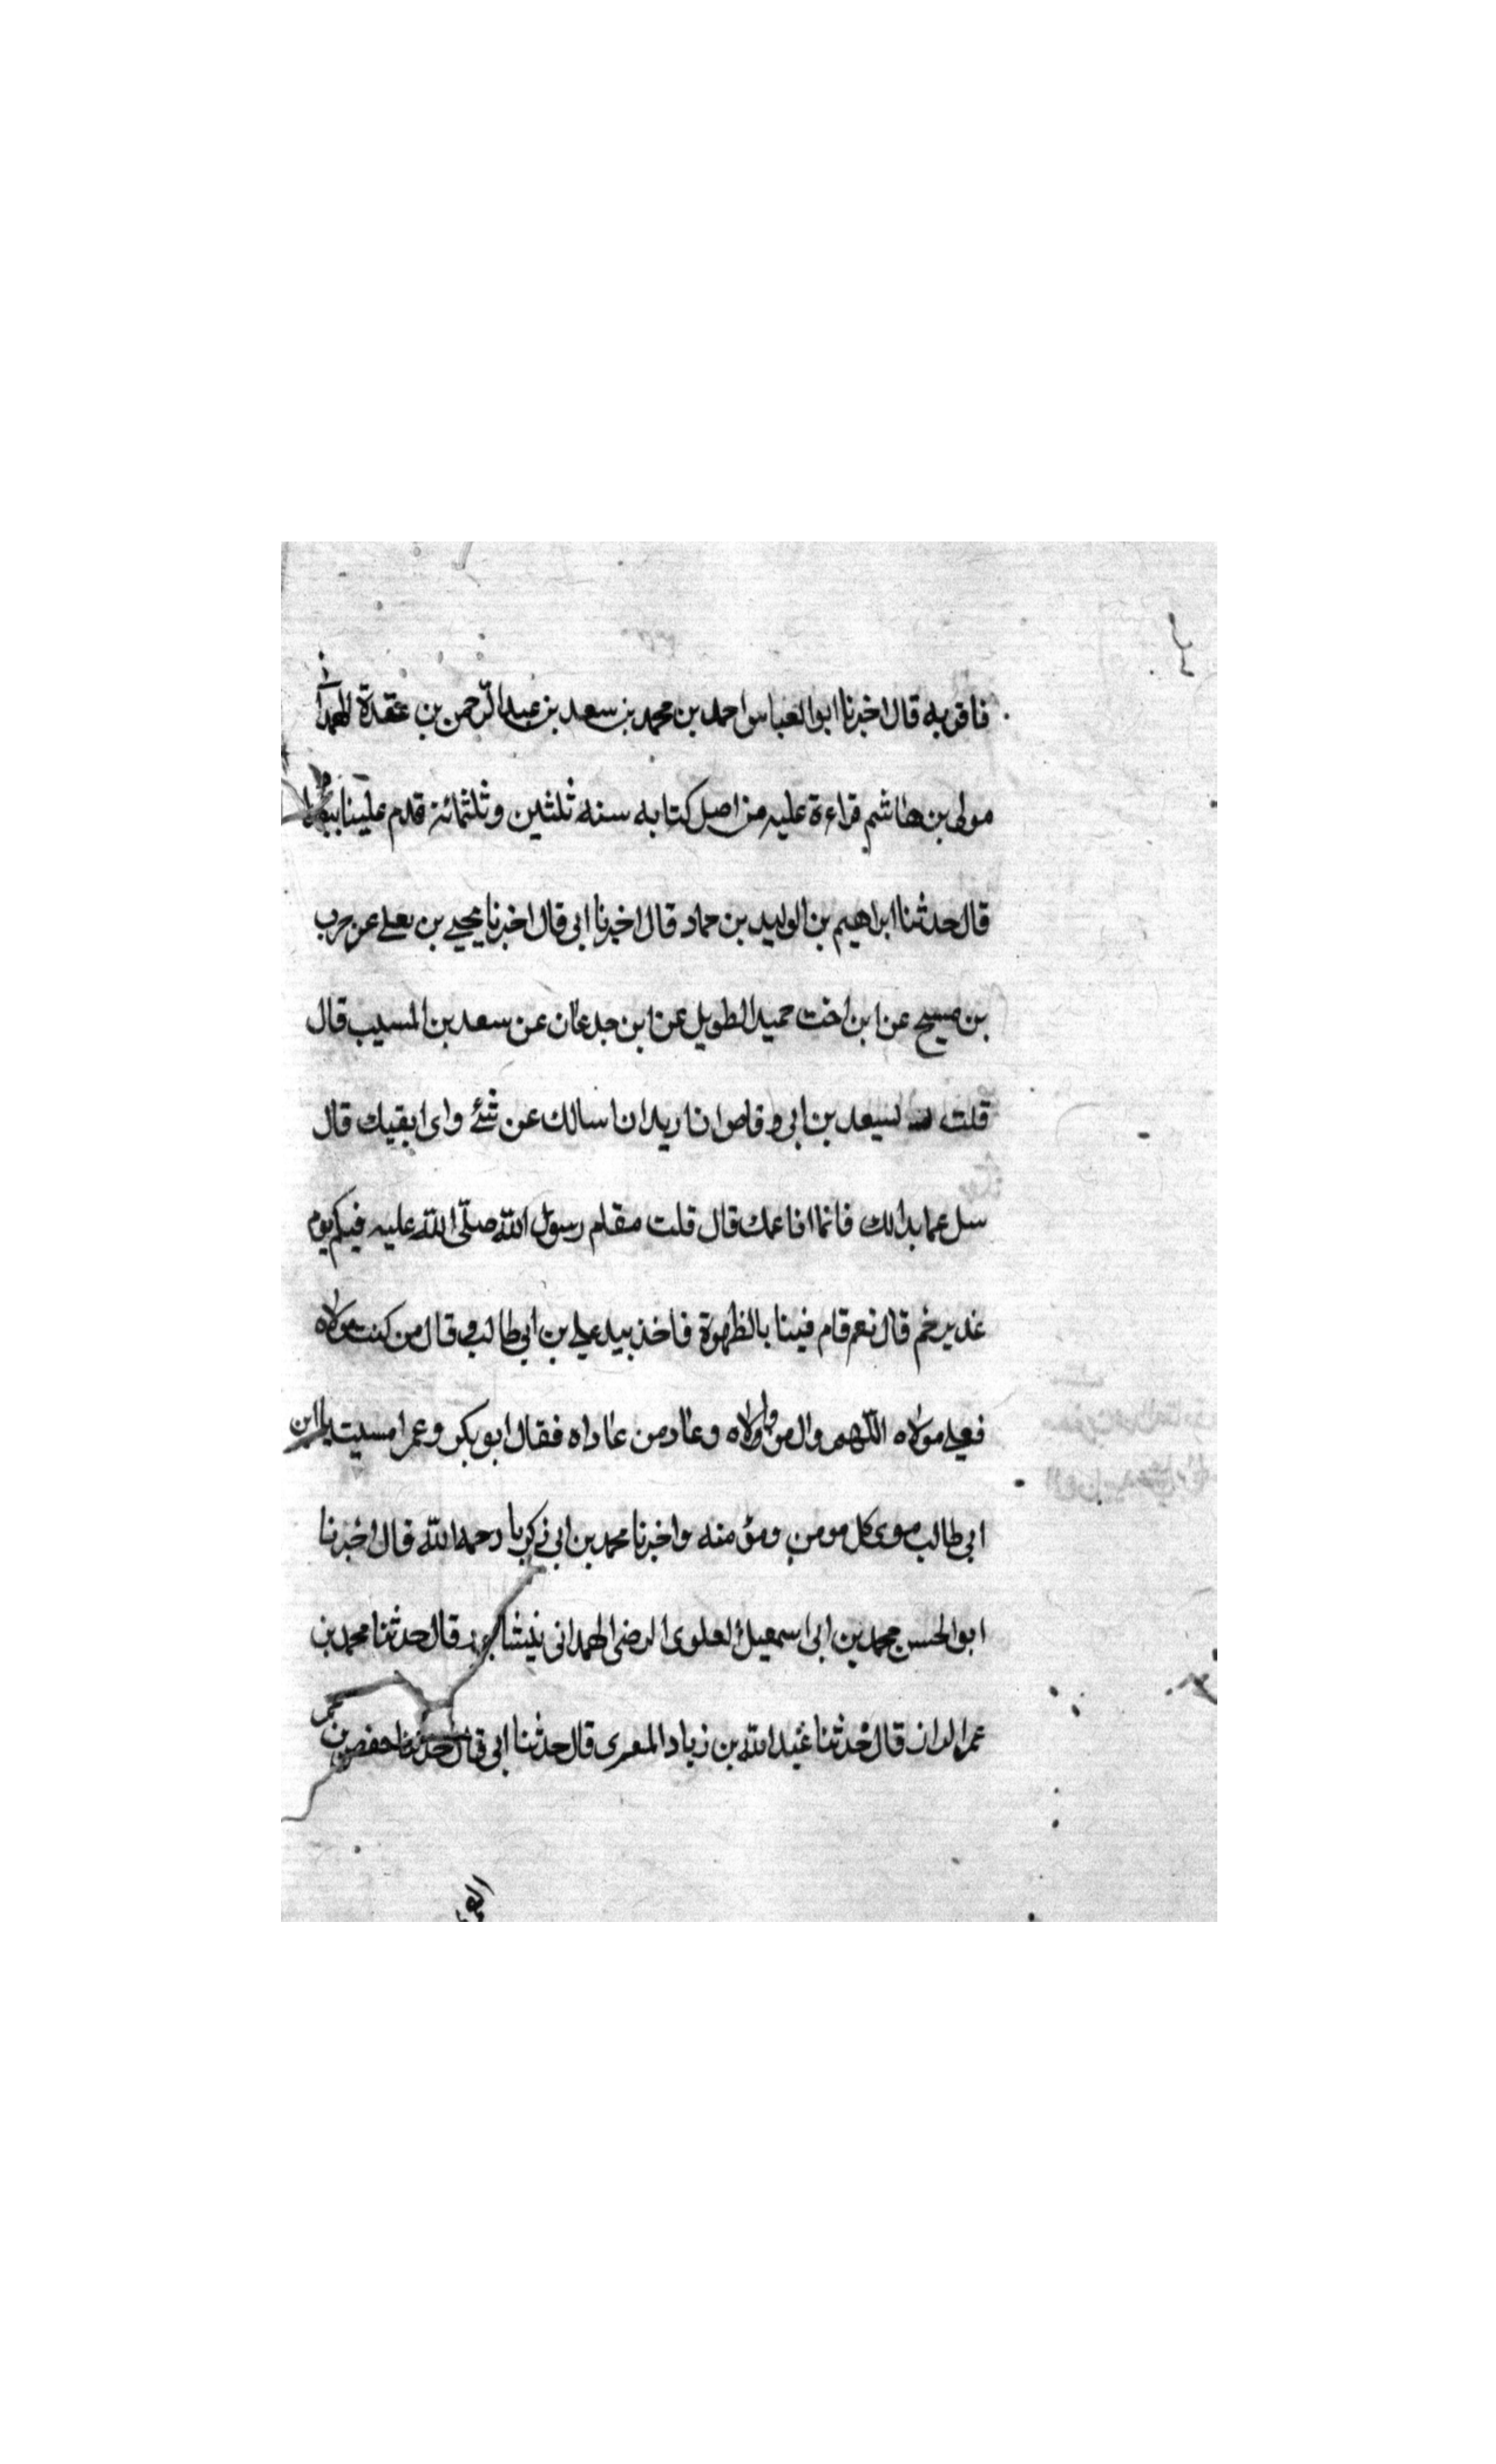 فاقر به قال اخبرنا ابو العباس احمد بن محمد بن سعد بن عبد الرّحمن بن عقدة الهمدا
مولى بن هاشم قراءة عليه من اصل كتابه سنه ثلثين وثلثمائة قدم علينا
قال حدثنا ابراهيم بن الوليد بن حماد قال اخبرنا ابى قال اخبرنا يحيى بن يعلى عن حرب
بن صبيح عن ابن اخت حميد الطويل عن ابن جدعان عن سعد بن المسيب قال
قلت لسعد بن ابى وقاص انا اريد ان اسالك عن شئ وانى ابقيك قال
سل عما بدالك فانما انا عمك قال قلت مقام رسول اللّه صلّى اللّه عليه فيكم يوم
غدير خم قال نعم قام فينا بالظهوة فاخذ بيد على بن ابى طالب وقال من كنت مولاه
فعلى مولاه اللّهم وال من والاه وعاد من عاداه فقال ابو بكر وعمر امسيت يا ابن
ابى طالب مولى كل مومن ومؤمنه واخبرنا محمد بن ابى زكريا رحمه اللّه قال اخبرنا
ابو الحسن محمد بن ابى اسمعيل العلوى الرضى الهمدانى قال حدثنا محمد بن
عمر قال حدثنا عبد اللّه بن زياد المقرى قال حدثنا ابى قال حدثنا حفص بن عمر